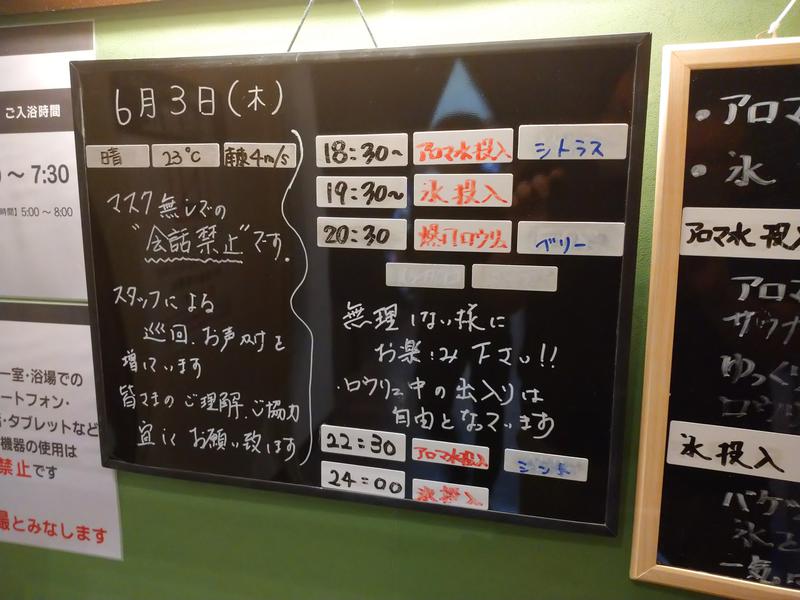 ご入浴時間
～ 7:30
時間】5:00 ～ 8:00
一室・浴場での
ートフォン・
・タブレットなど
機器の使用は
禁止です
最とみなします
6月3日(木)
晴 23℃ 南東4m/s
マスク無しでの
"会話禁止"です。
スタッフによる
巡回、お声がけを
増しています
皆さまのご理解、ご協力
宜しくお願い致します
18:30～ アロマ水投入 シトラス
19:30～ 氷投入
20:30 爆風ロウリュ ベリー
無理しない様に
お楽しみ下さい!!
・ロウリュ中の出入りは
自由となっています
22:30 アロマ水投入 ミント
24:00 氷投入
・アロマ
・氷
アロマ水投入
アロマ
サウナ
ゆっくり
ロウリ
氷投入
バケツ
氷を
一気